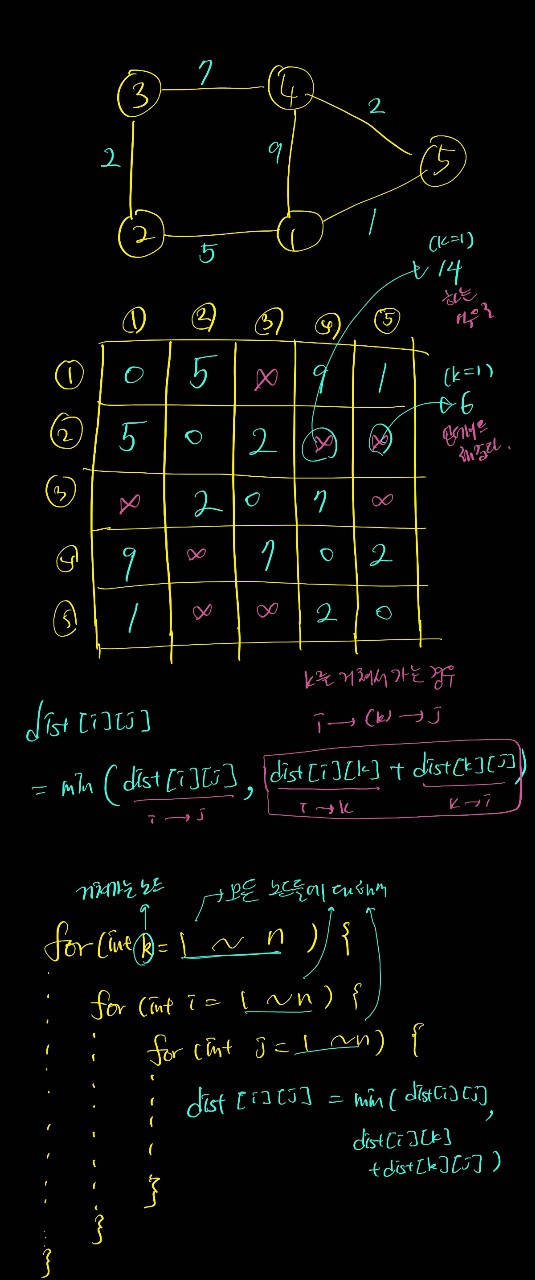 7
3 4
2
2 9 5
2 1
5 1
(k=1)
14
(k=1)
6
① ② ③ ④ ⑤
① 0 5 ∞ 9 1
② 5 0 2 ∞ ∞
③ ∞ 2 0 7 ∞
④ 9 ∞ 7 0 2
⑤ 1 ∞ ∞ 2 0
k를 거쳐서 가는 경우
i → (k) → j
dist[i][j]
= min (dist[i][j], dist[i][k] + dist[k][j])
i → j i → k k → i
거쳐가는 노드 → 모든 노드들에 대해서
for (int k = 1 ~ n ) {
for (int i = 1 ~ n) {
for (int j = 1 ~ n) {
dist [i][j] = min( dist[i][j],
dist[i][k]
+dist[k][j] )
}
}
}